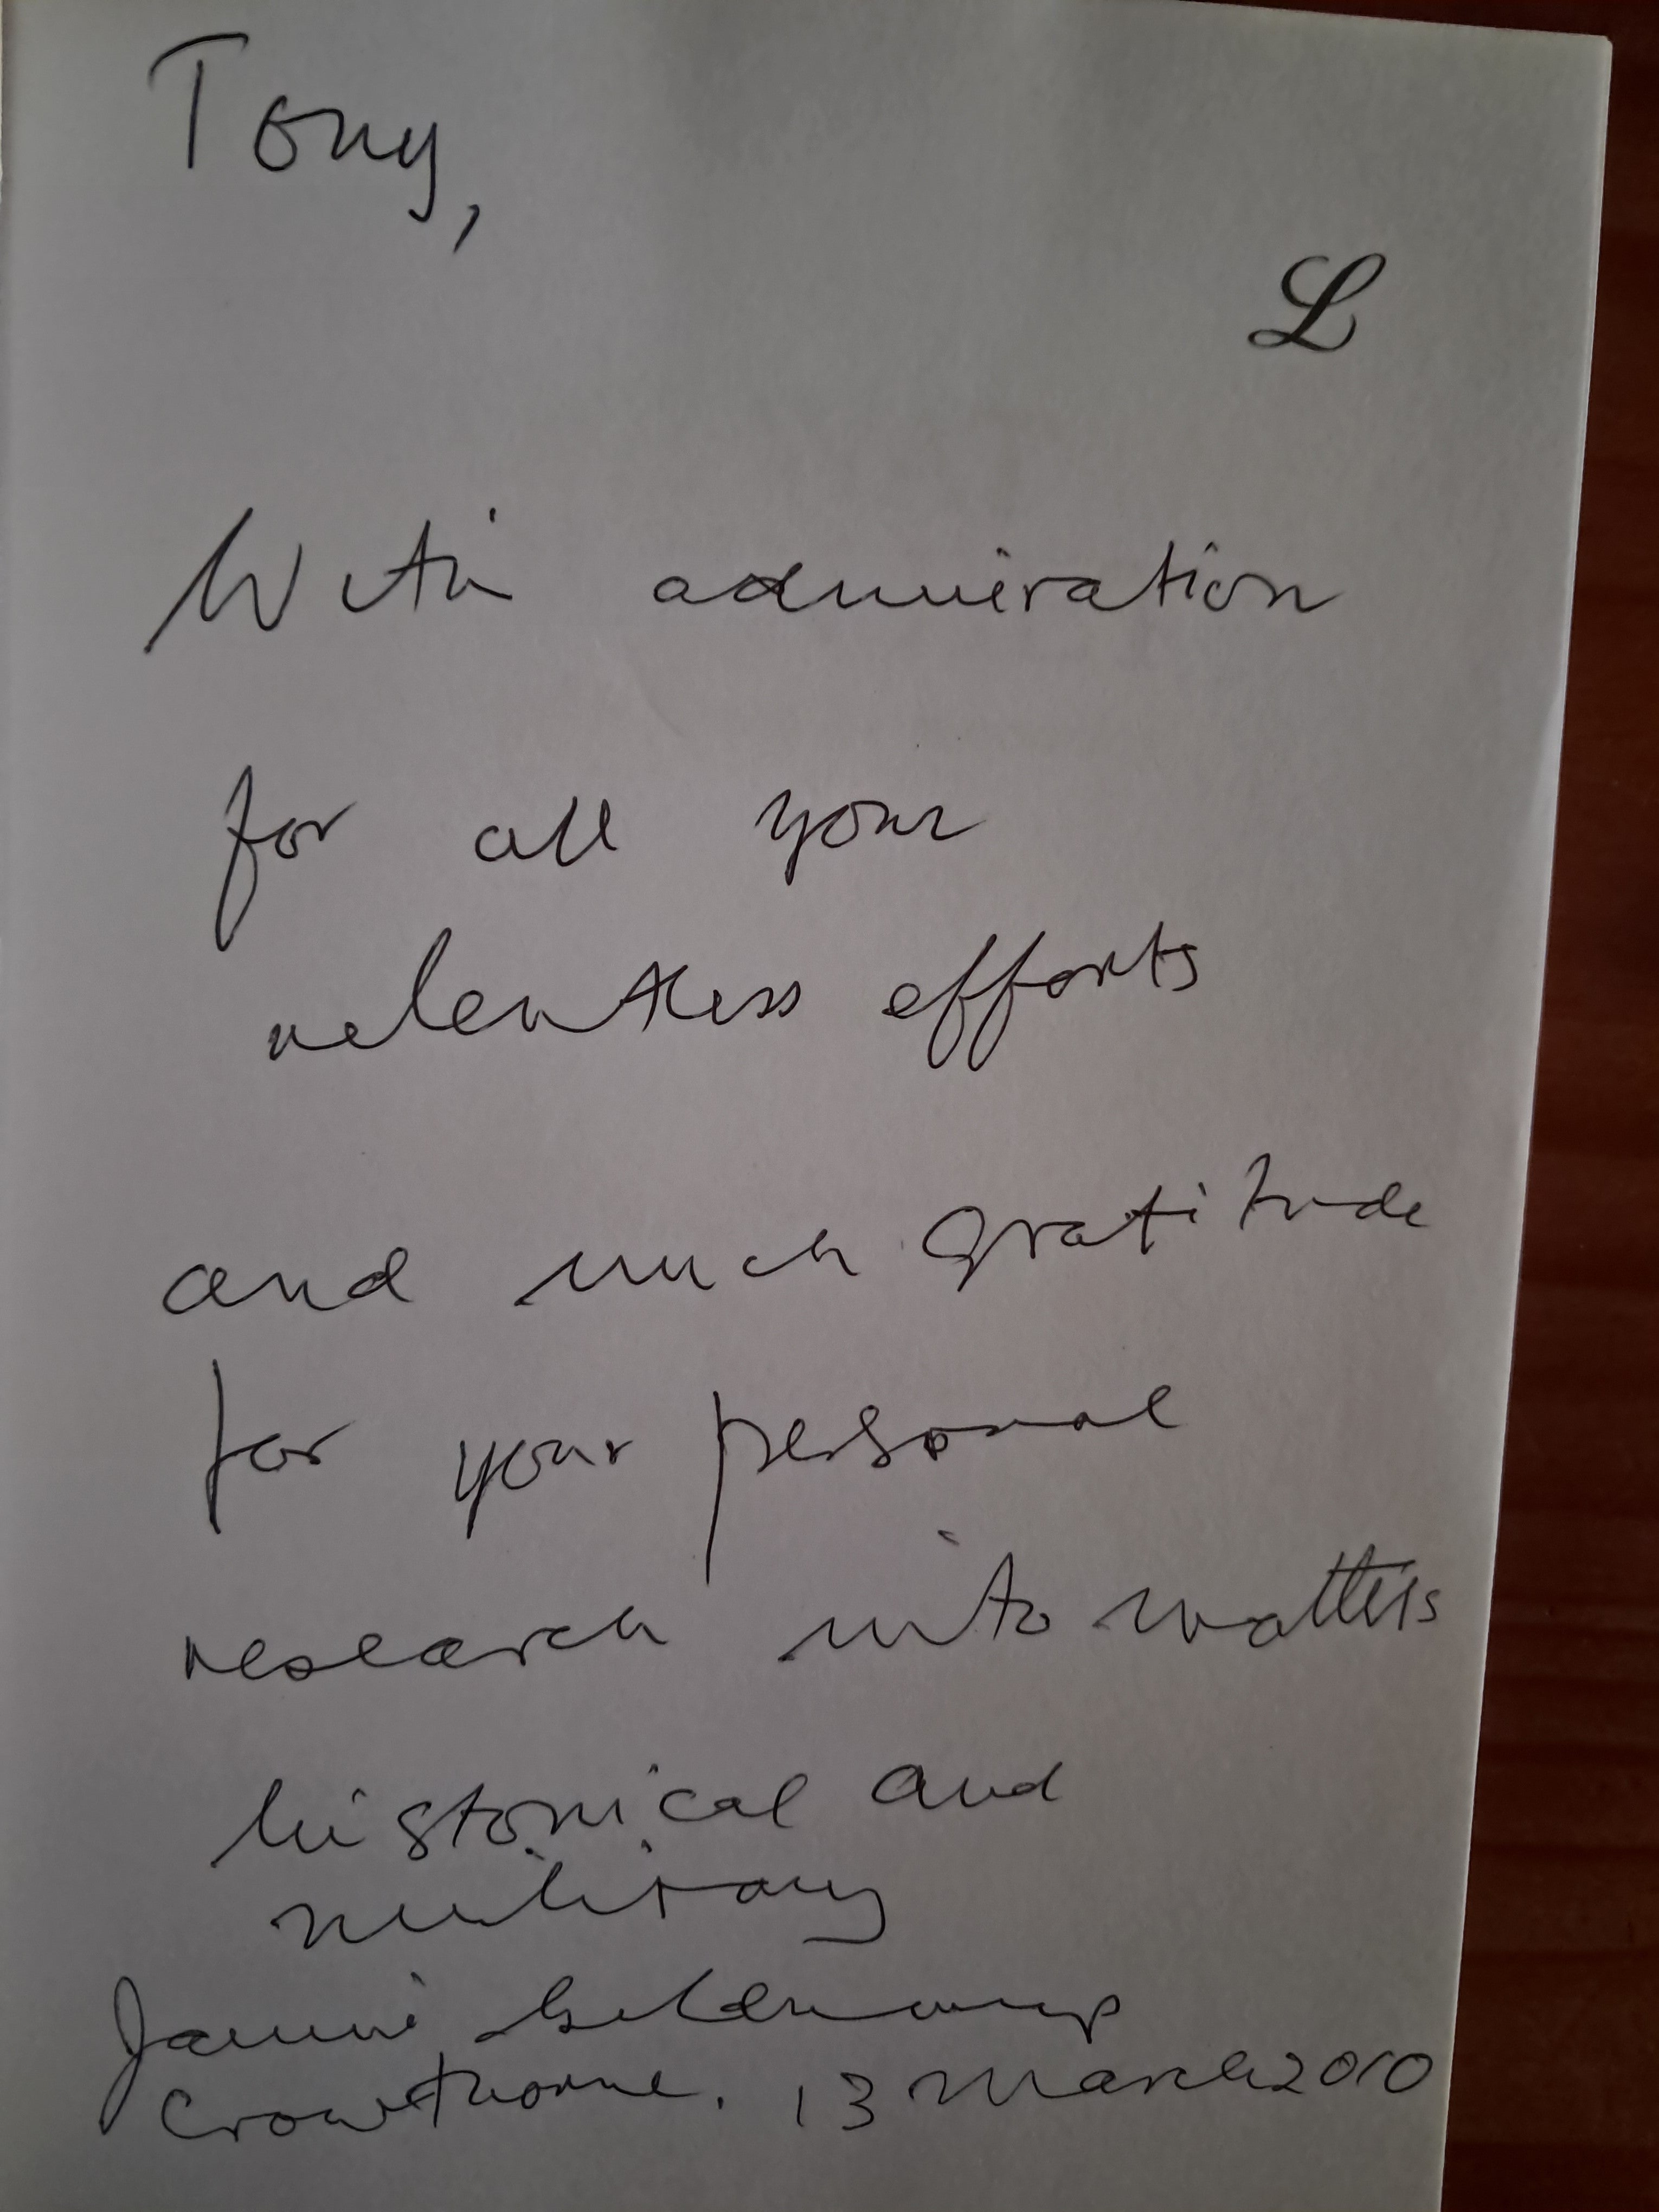 Tony,
L
With admiration
for all your
relentless efforts
and much gratitude
for your personal
research into matters
historical and
military
Crowthorne. 13 March 2010